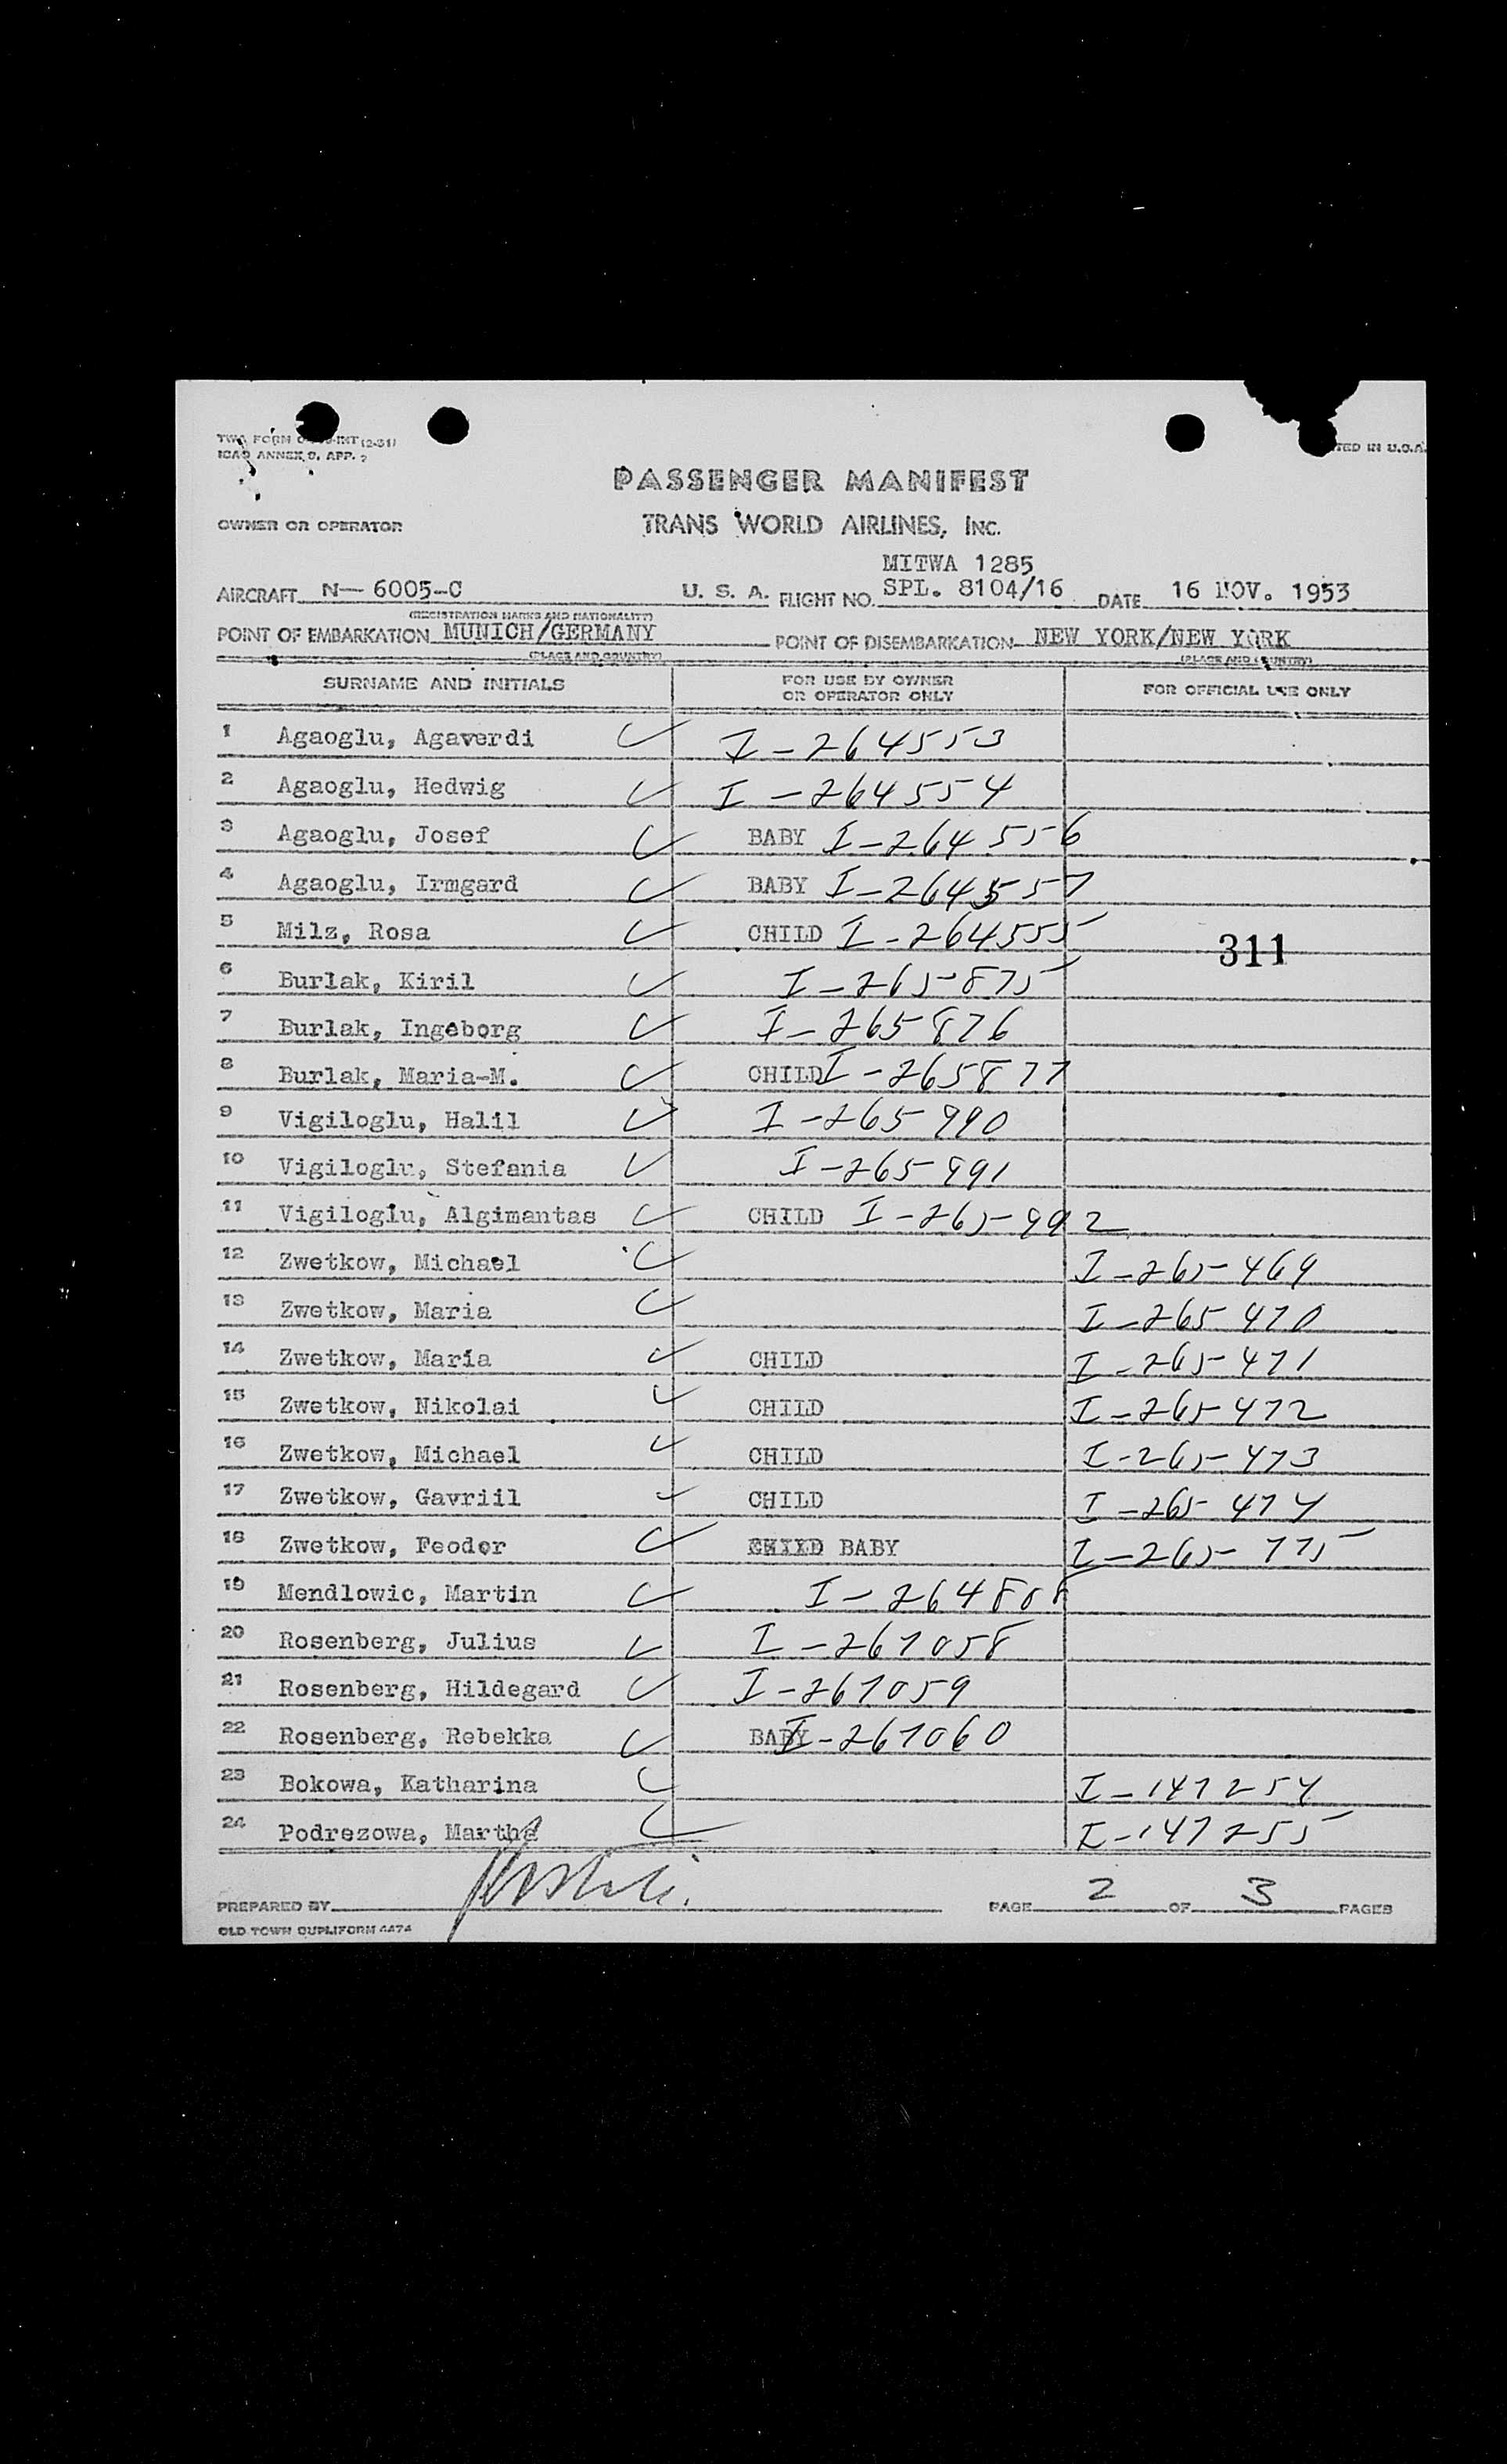 TWA FORM
ICAO ANNEX 9, APP.
PASSENGER MANIFEST
OWNER OR OPERATOR TRANS WORLD AIRLINES, INC.
MITWA 1285
AIRCRAFT N— 6005-C U. S. A. FLIGHT NO. SPL. 8104/16 DATE 16 NOV. 1953
(REGISTRATION MARKS AND NATIONALITY)
POINT OF EMBARKATION MUNICH/GERMANY POINT OF DISEMBARKATION NEW YORK/NEW YORK
(PLACE AND COUNTRY) (PLACE AND COUNTRY)
SURNAME AND INITIALS FOR USE BY OWNER OR OPERATOR ONLY FOR OFFICIAL USE ONLY
1 Agaoglu, Agaverdi I-264553
2 Agaoglu, Hedwig I-264554
3 Agaoglu, Josef BABY I-264556
4 Agaoglu, Irmgard BABY I-264557
5 Milz, Rosa CHILD I-264555
311
6 Burlak, Kiril I-265875
7 Burlak, Ingeborg I-265876
8 Burlak, Maria-M. CHILD I-265877
9 Vigiloglu, Halil I-265990
10 Vigiloglu, Stefania I-265991
11 Vigiloglu, Algimantas CHILD I-265992
12 Zwetkow, Michael I-265469
13 Zwetkow, Maria I-265470
14 Zwetkow, Maria CHILD I-265471
15 Zwetkow, Nikolai CHILD I-265472
16 Zwetkow, Michael CHILD I-265473
17 Zwetkow, Gavriil CHILD I-265474
18 Zwetkow, Feodor CHILD BABY I-265775
19 Mendlowic, Martin I-264808
20 Rosenberg, Julius I-267058
21 Rosenberg, Hildegard I-267059
22 Rosenberg, Rebekka BABY I-267060
23 Bokowa, Katharina I-147254
24 Podrezowa, Martha I-147255
PREPARED BY PAGE 2 OF 3 PAGES
OLD TOWN DUPLIFORM 4474